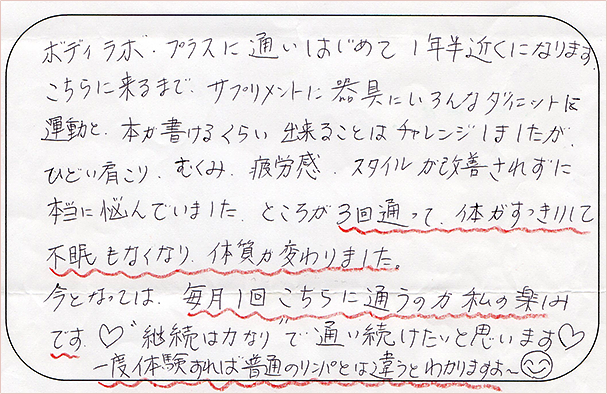 ボディラボ・プラスに通いはじめて1年半近くになります。
こちらに来るまで、サプリメントに器具にいろんなダイエットに
運動と、本が書けるくらい出来ることはチャレンジしましたが、
ひどい肩こり、むくみ、疲労感、スタイルが改善されずに
本当に悩んでいました。ところが3回通って、体がすっきりして
不眠もなくなり、体質が変わりました。
今となっては、毎月1回こちらに通うのが私の楽しみ
です。♡"継続は力なり"で通い続けたいと思います♡
一度体験すれば普通のリンパとは違うとわかりますよ~☺